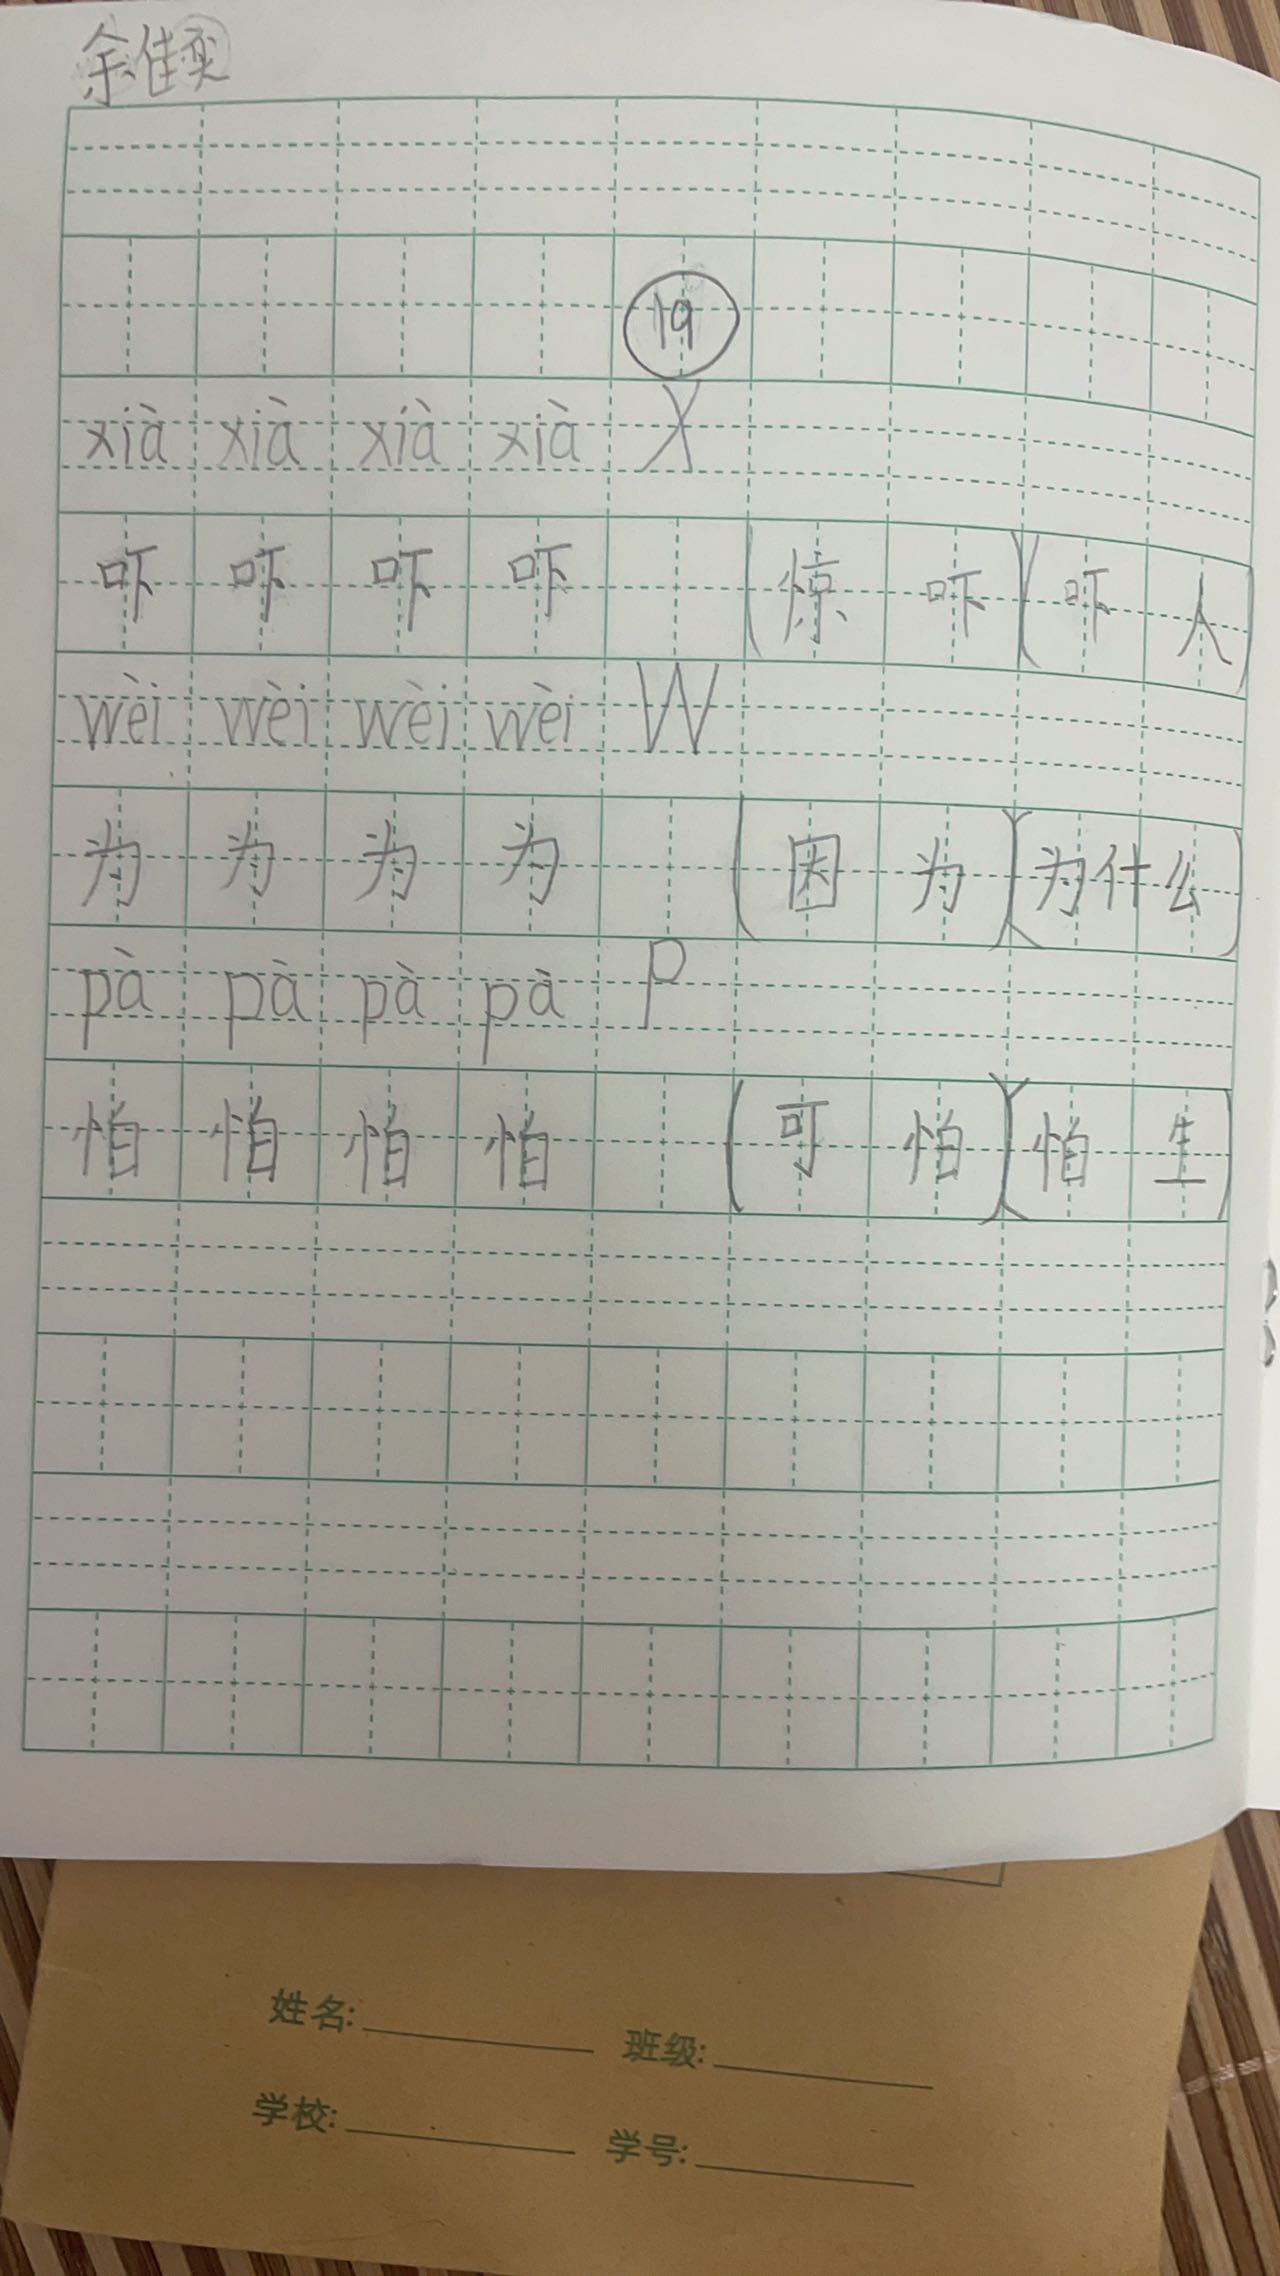 余佳奕
19
xià xià xià xià X
吓 吓 吓 吓 (惊 吓)(吓 人)
wèi wèi wèi wèi W
为 为 为 为 (因 为)(为什么)
pà pà pà pà P
怕 怕 怕 怕 (可 怕)(怕 生)
姓名: 班级:
学校: 学号: